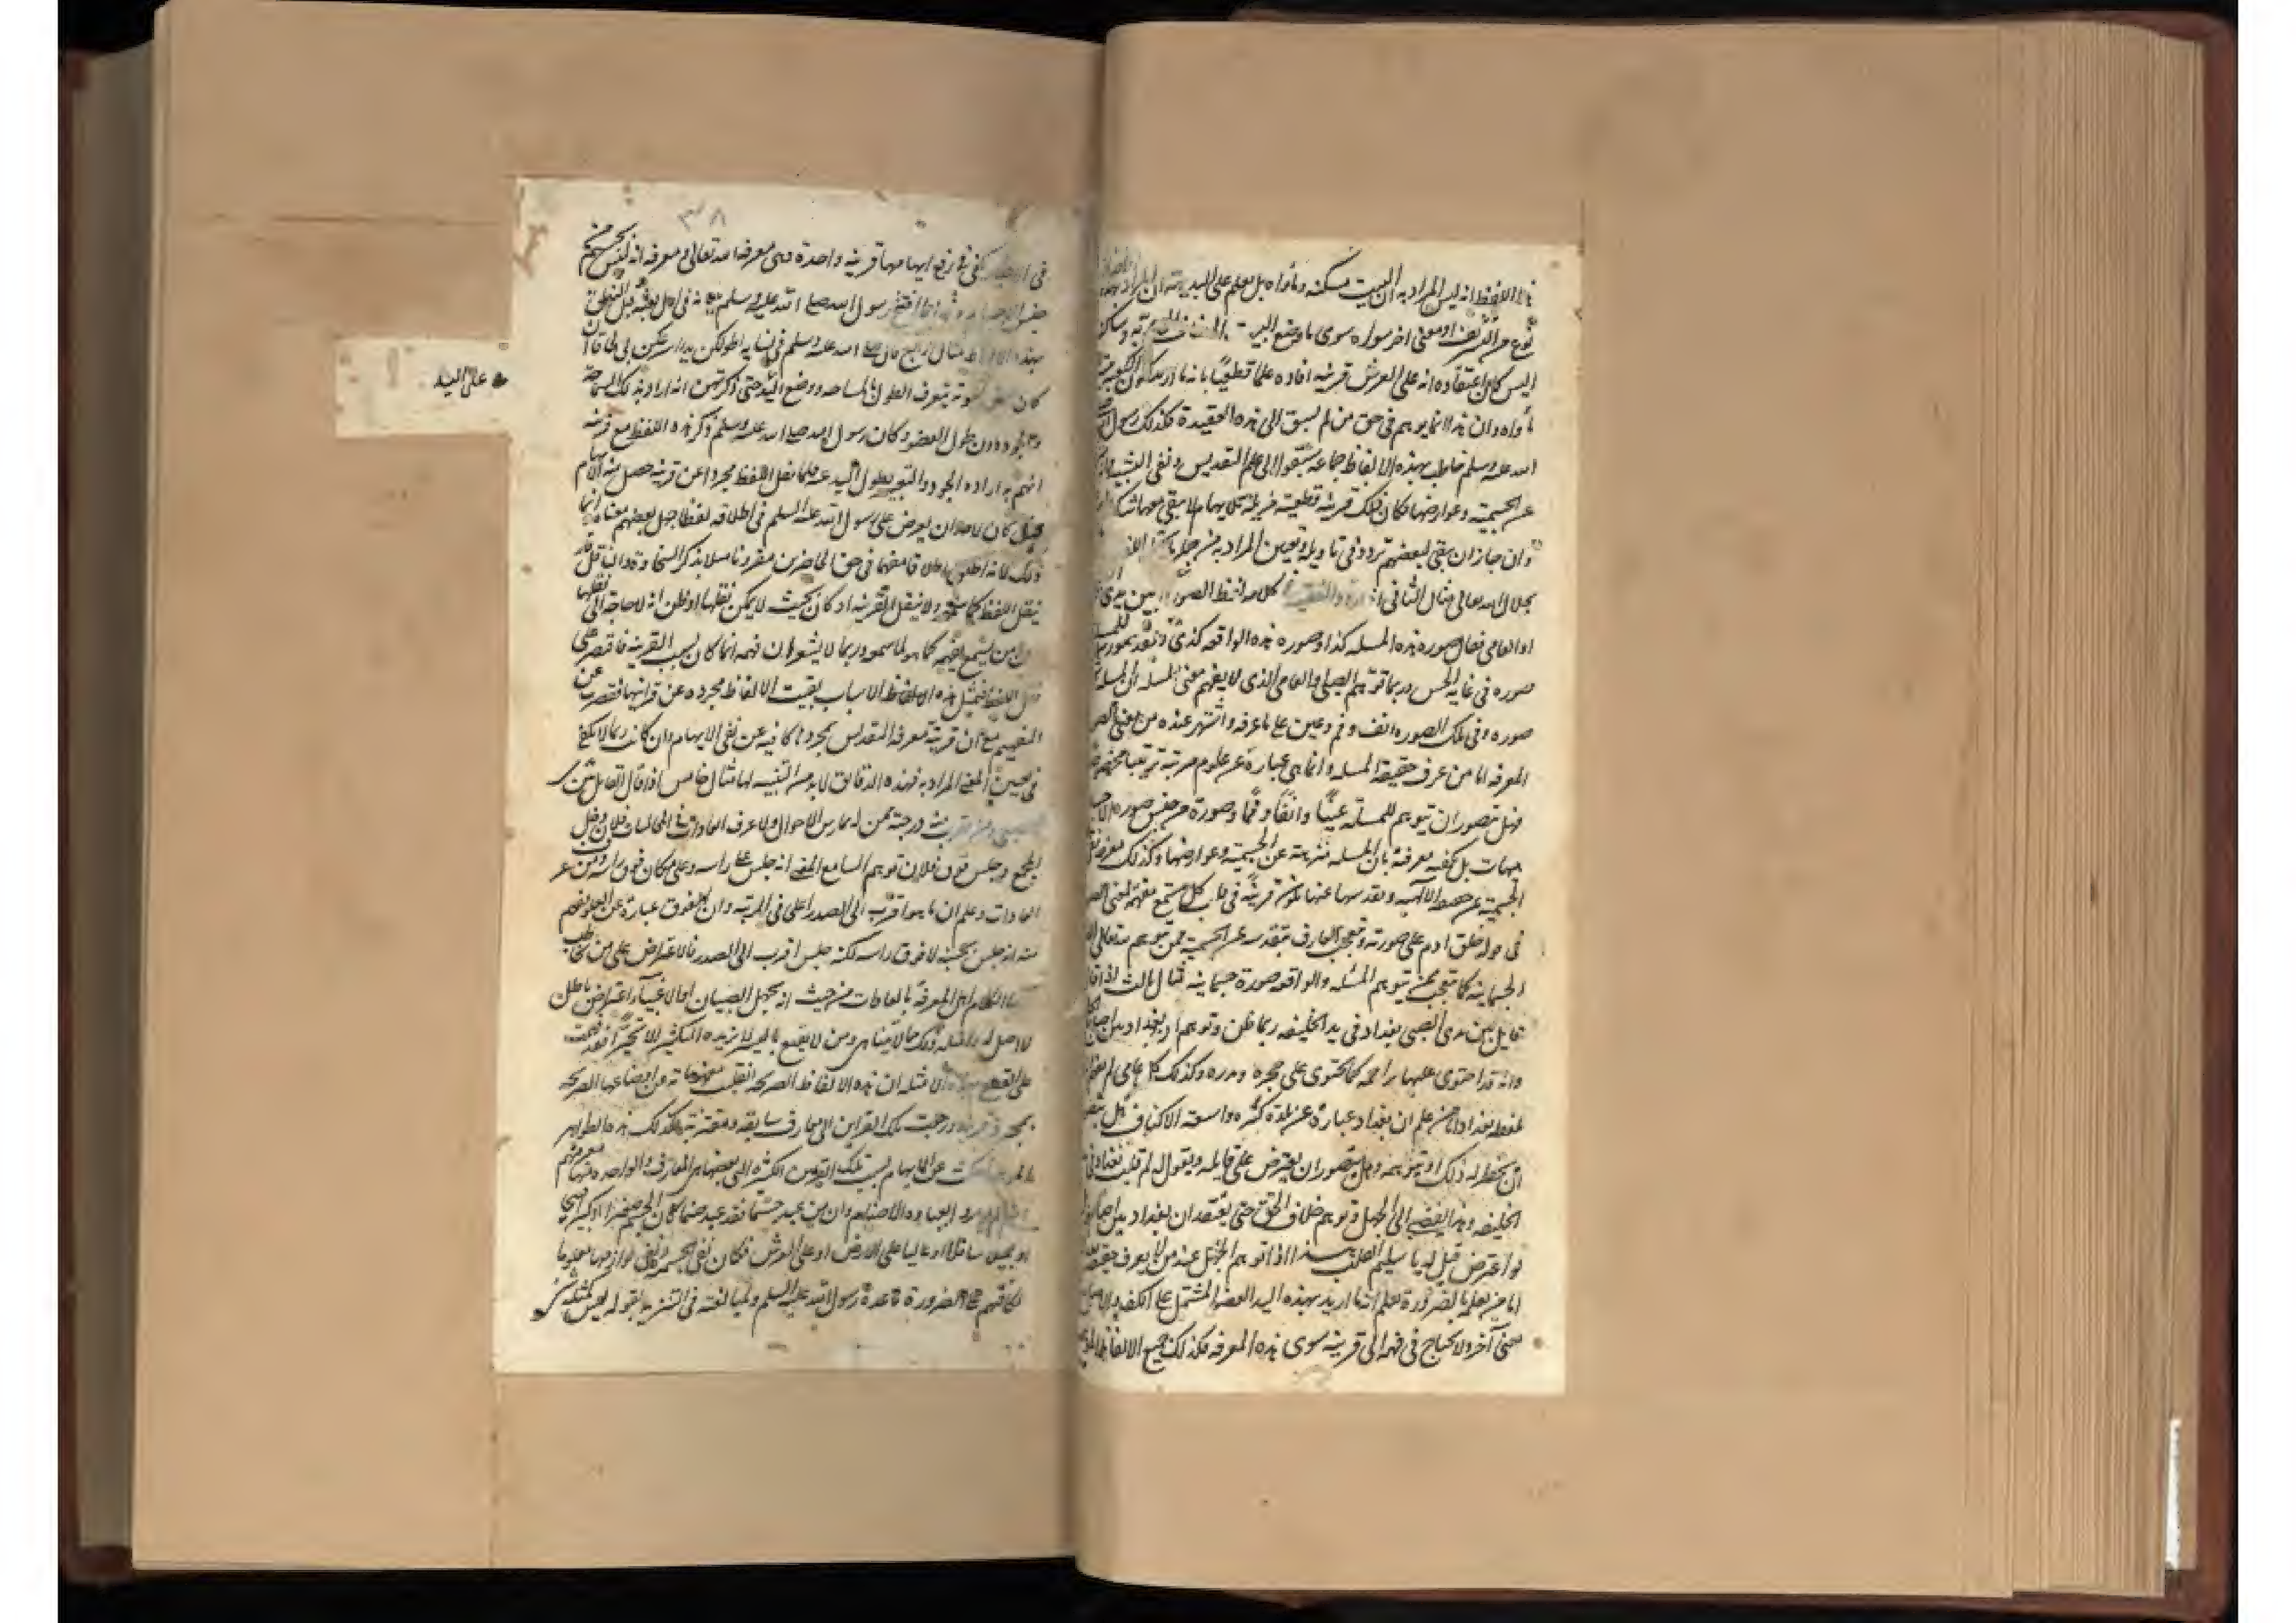 هذا اللفظ انه ليس المراد به ان البيت مسكنه ومأواه بل يعلم على البديهة ان المراد بهذه
نوع من التشريف او معنى اخر سواه سوى ما وضع له البيت
اليس كان اعتقاده انه على العرش قرينة افاده علما قطعيا بانه ما اريد بكون الكعبة بيته
مأواه وان هذا انما يوهم فى حق من لم يسبق الى هذه العقيدة فكذلك رسول الله
الله عليه وسلم خاطب بهذه الالفاظ جماعة سبقوا الى علم التقديس ونفى التشبيه
عن الجسمية وعوارضها فكان ذلك قرينة قطعية مزيلة للايهام لا يبقى معها شك
وان جاز ان يبقى لبعضهم تردد فى تاويله وتعيين المراد به من جملة ما
بجلال الله تعالى مثال الثانى اذا الفقيه كلامه لفظ الصورة بين يدى
او العامى فقال صورة هذه المسله كذا وصورة هذه الواقعه كذى ولقد صورت للمسله
صورة فى غاية الحسن ربما توهم الصبى والعامى الذى لا يفهم معنى المسله ان المسله
صورة وفى تلك الصورة انف وفم وعين على ما عرفه واشتهر عنده من معنى الصورة
المعرفه اما من عرف حقيقة المسله وانما هى عبارة عن علوم مرتبة ترتيبا مخصوصا
فهل يتصور ان يتوهم للمسله عينا وانفا وفما وصورة من جنس صورة الاجسام
هيهات بل يكفيه معرفته بان المسله منزهة عن الجسمية وعوارضها وكذلك معرفة نفى
الجسمية عن حضرة الالهية وتقدسها عنها تكون قرينة فى قلب كل مستمع مفهمه لمعنى الصورة
فى قوله خلق ادم على صورته وتعجب العارف بتقدسه عن الجسمية ممن يتوهم لله تعالى
الجسمانية كما يتعجب ممن يتوهم للمسئله والواقعه صورة جسمانية مثال الثالث اذا قال
قايل بين يدى الصبى بغداد فى يد الخليفه ربما ظن وتوهم ان بغداد بين اصابعه
وانه قد احتوى عليها براحته كما يحتوى على حجره ومدره وكذلك كل عامى لم يفهم
لفظ بغداد اما من علم ان بغداد عبارة عن بلدة كبيره واسعة الاكناف هل يتصور
ان يخطر له ذلك او يتوهم وهل يتصور ان يعترض على قايله ويقول له لم قلت بغداد فى
الخليفه وهذا يفضى الى الجهل وتوهم خلاف الحق حتى يعتقد ان بغداد بين اصابعه
لو اعترض قيل له يا سليم القلب هذا انما توهم الجهل عند من لا يعرف حقيقة
اما من يعلمها بالضرورة يعلم انه ما اريد بهذه اليد العضو المشتمل على الكف والاصابع
معنى آخر ولا يحتاج فى فهمه الى قرينة سوى هذه المعرفه فكذلك جميع الالفاظ الموهمة
٣٨
فى الاخبار يكفى فى رفع ايهامها قرينة واحدة وهى معرفة الله تعالى ومعرفة انه ليس بجسم من
جنس الاجسام رسول الله صلى الله عليه وسلم ببيانه فى اول بعثه قبل النطق
بهذه الالفاظ مثال رابع قال صلى الله عليه وسلم فى نسايه اطولكن يدا اسرعكن بى لحاقا
كان نسوته يتعرف الطول بالمساحه ووضع اليد على اليد حتى ذكر لهن انه اراد به ذلك السماحة
والجود دون طول العضو وكان رسول الله صلى الله عليه وسلم ذكر هذه اللفظ مع قرينة
افهم به اراده الجود والتعبير بطول اليد عنه فلما نقل اللفظ مجردا عن قرينه حصل منه الايهام
فهل كان لاحد ان يعترض على رسول الله عليه السلم فى اطلاقه لفظا جهل بعضهم معناه انما
ذلك لانه اطلق اطلاقا مفهما فى حق الحاضرين مقرونا مثلا بذكر السخاوة والناقل قد
ينقل اللفظ كما سمعه ولا ينقل القرينة او كان بحيث لا يمكن نقلها او ظن انه لا حاجة الى نقلها
وان من يسمع يفهمه كما هو لما سمعه وربما لا يشعر ان فهمه انما كان بسبب القرينه فاقتصر على
نقل اللفظ فبمثل هذه الاسباب بقيت الالفاظ مجرده عن قراينها فقصرت عن
التفهيم مع ان قرينة معرفة التقديس بمجردها كافيه عن نفى الايهام وان كانت ربما لا تكفى
فى تعيين المعنى المراد به فهذه الدقائق لابد من التنبيه لها مثال خامس اذا قال القائل بين يدى
الصبى ومن يقرب منه درجة ممن لم يمارس الاحوال ولا عرف العادات فى المجالسات فلان دخل
المجمع وجلس فوق فلان توهم السامع المعنى انه جلس على راسه وعلى مكان فوق راسه ومن عرف
العادات وعلم ان ما هو اقرب الى الصدر اعلى فى الرتبه وان الفوق عبارة عن العلو يفهم
منه انه جلس بجنبه لا فوق راسه لكنه جلس اقرب الى الصدر فالاعتراض على من خاطب
بهذا الكلام اهل المعرفة بالعادات من حيث انه يجهل الصبيان او الاغبيا اعتراض باطل
لا اصل له وامثلة ذلك مما لا يتناهى ومن لا يقنع باليسير لا يزيده الكثير الا تحيرا فقد فهمت
على القطع بهذه الامثله ان هذه الالفاظ الصريحه انقلبت مفهوماتها عن اوضاعها الصريحه
بمجرد قرينة ورجعت تلك القراين الى معارف سابقه ومقترنة فكذلك هذه الظواهر
الموهمة انقلبت عن الايهام بسبب تلك القراين الكثيرة التى بعضها هى المعارف والواحدة منها معرفتهم
انهم لم يؤمروا بعبادة الاصنام وان من عبد جسما فقد عبد صنما كان الجسم صغيرا او كبيرا قبيحا
او جميلا سافلا او عاليا على الارض او على العرش فكان نفى الجسمية ونفى لوازمها معلوما
لكافتهم على الضرورة باعلام رسول الله عليه السلم ومبالغته فى التنزيه بقوله ليس كمثله شى
على اليد